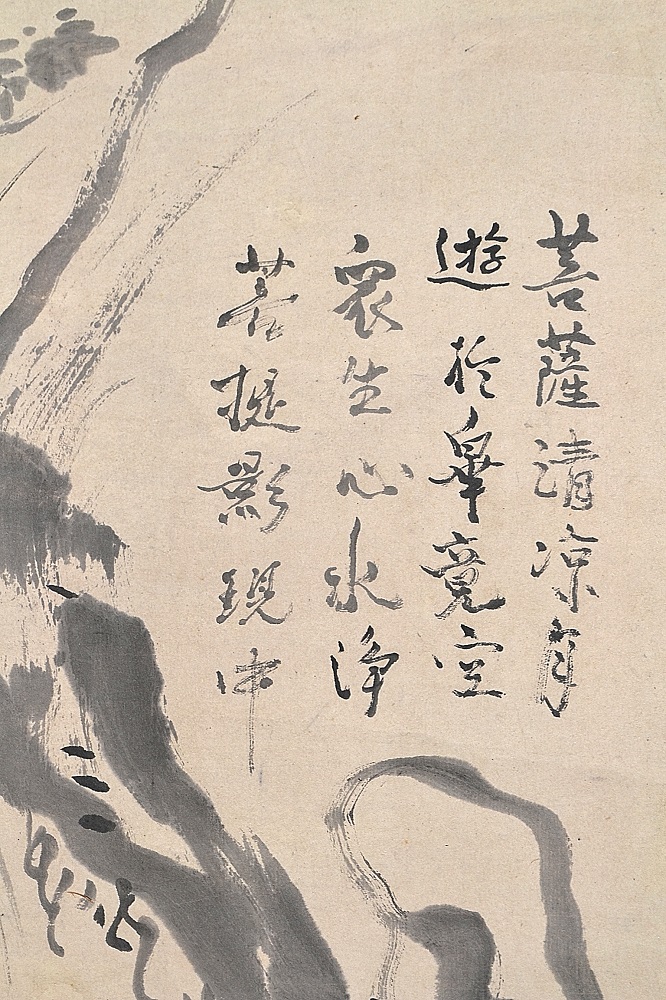 菩薩清凉月
遊於畢竟空
衆生心水浄
菩提影現中